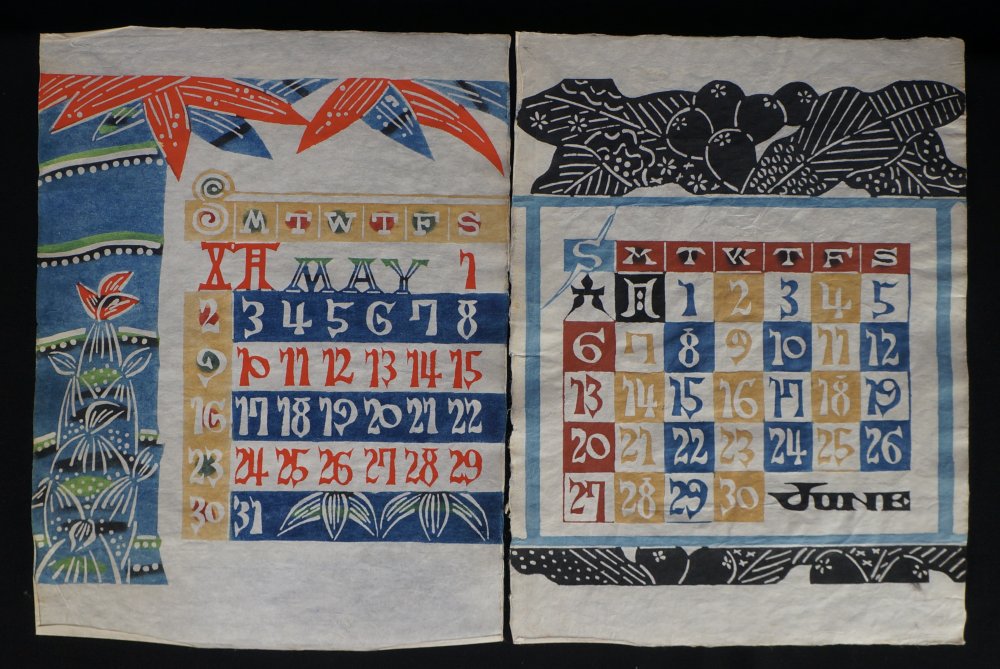 S M T W T F S
五月 MAY 1
2 3 4 5 6 7 8
9 10 11 12 13 14 15
16 17 18 19 20 21 22
23 24 25 26 27 28 29
30 31
S M T W T F S
六月 1 2 3 4 5
6 7 8 9 10 11 12
13 14 15 16 17 18 19
20 21 22 23 24 25 26
27 28 29 30 JUNE